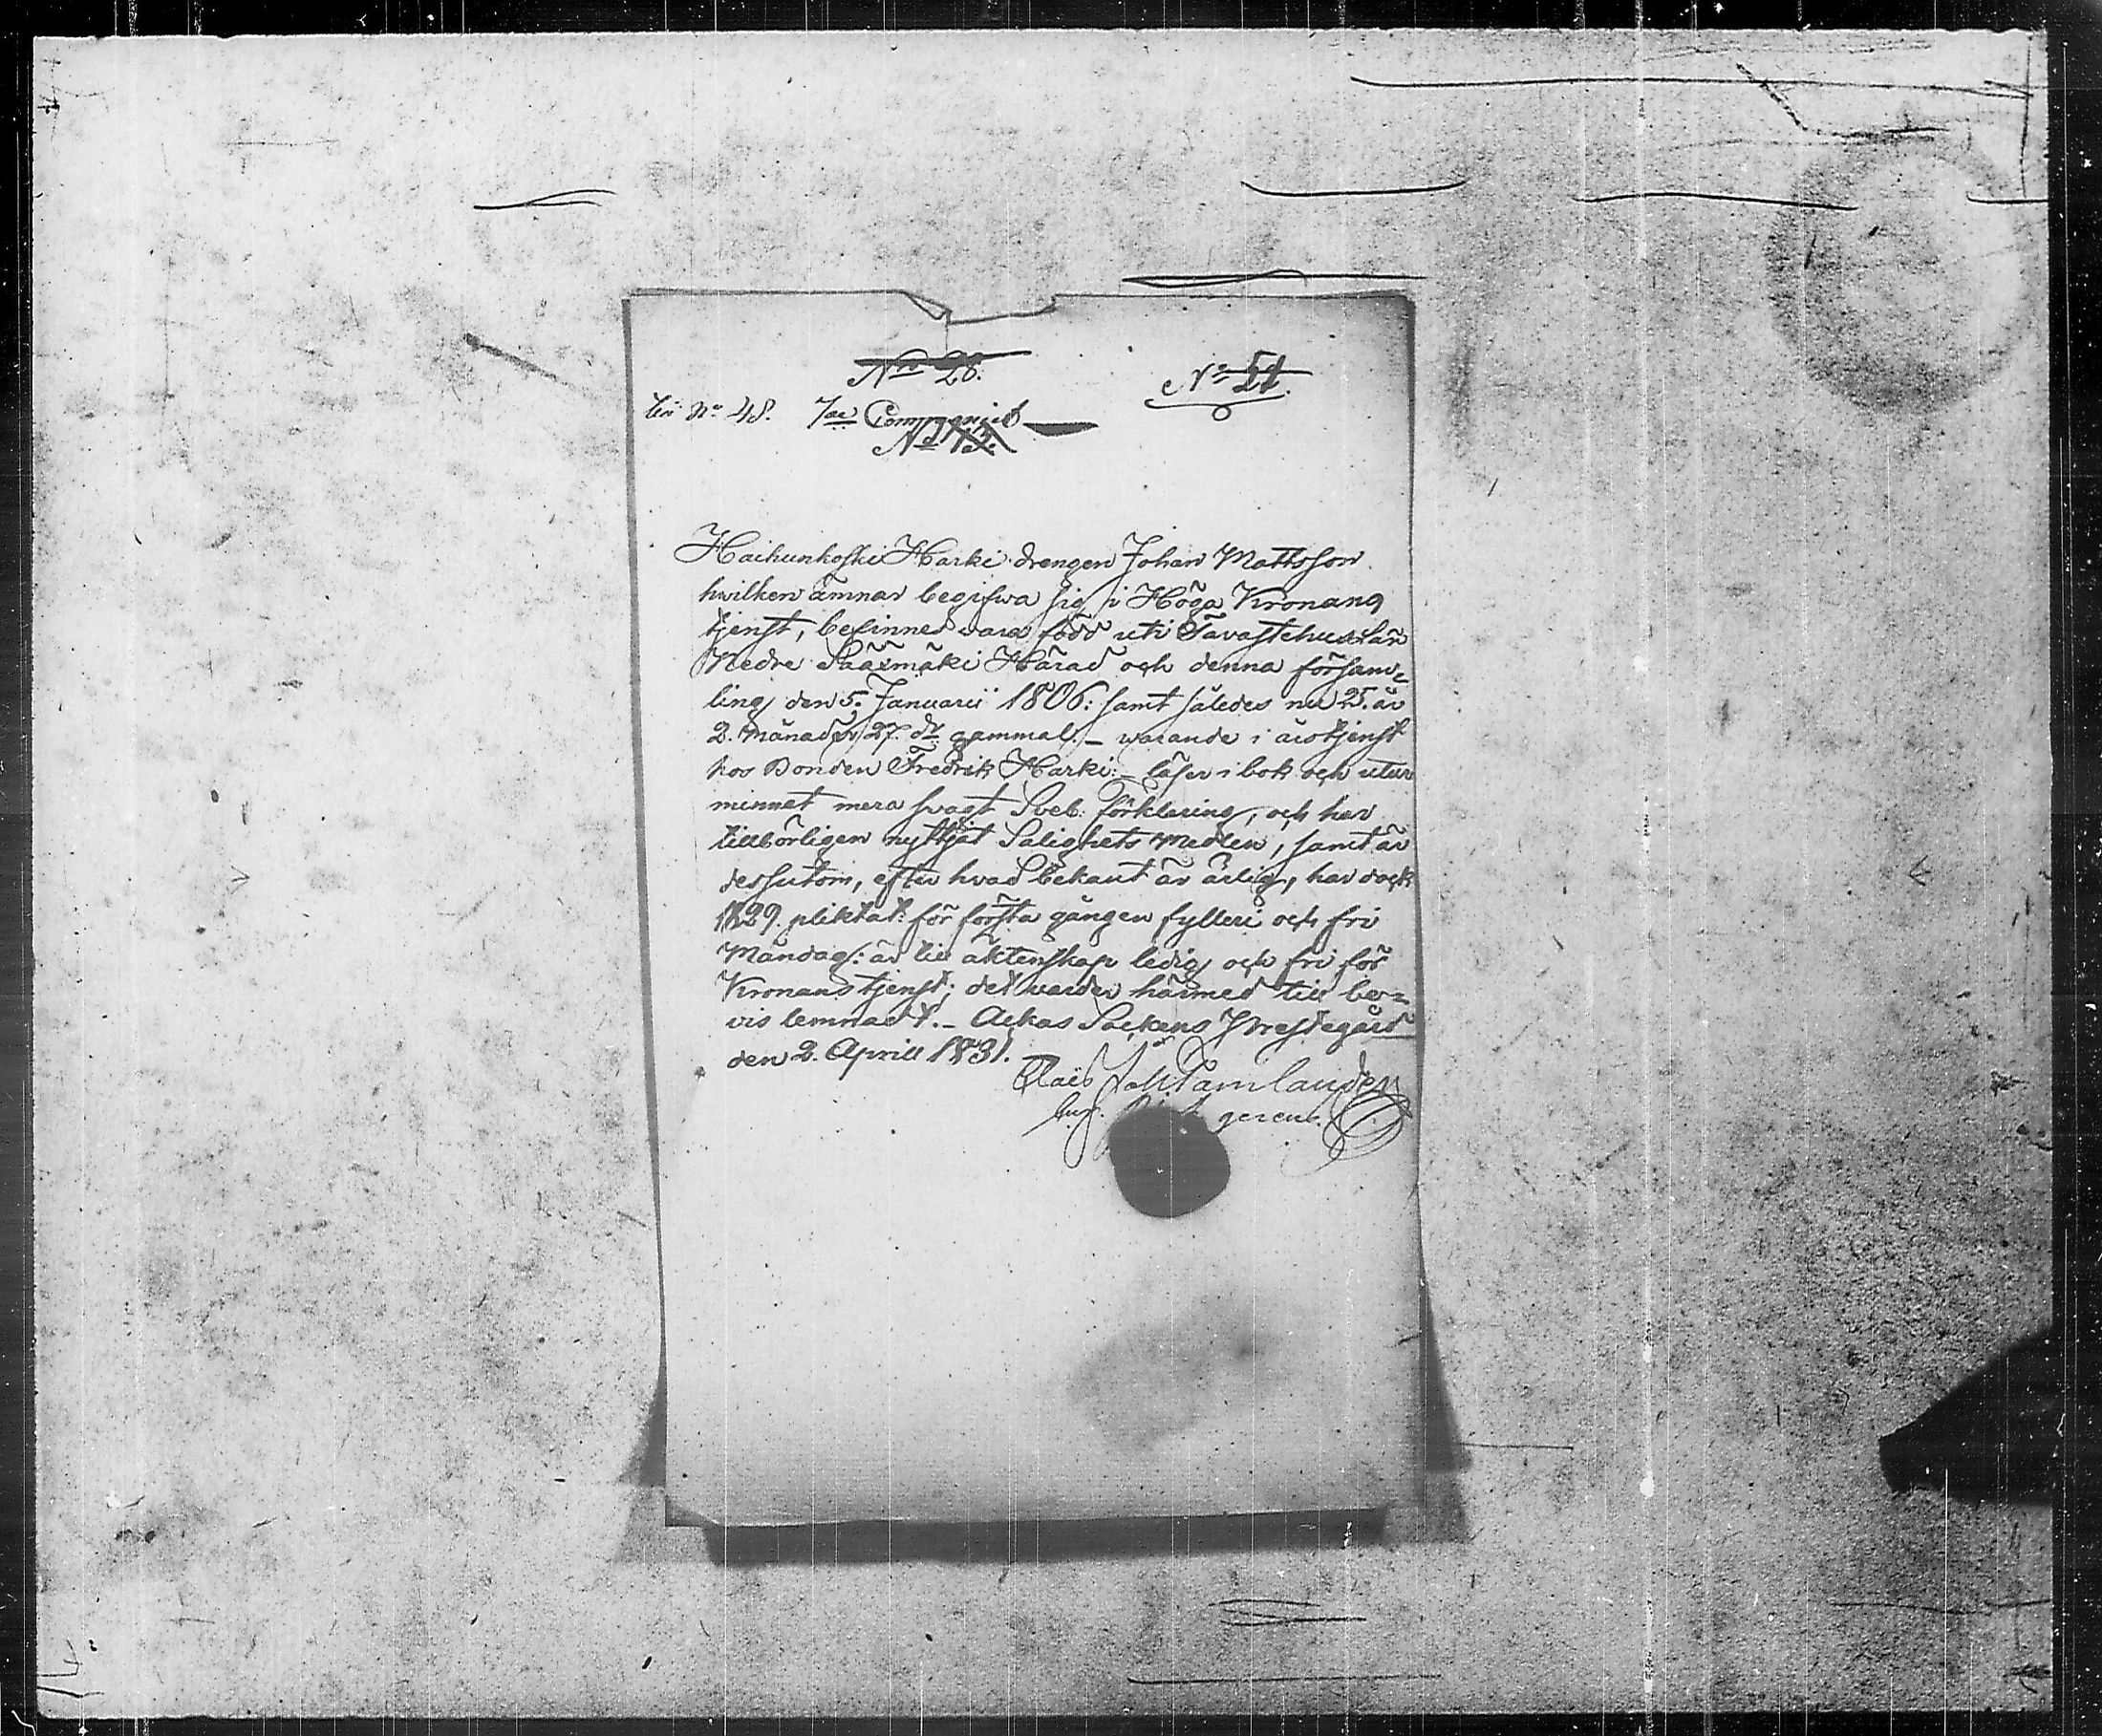 No 28.
No 51.
Til No 48. 7de Compagniet
No 13.
Haihunkoski Harki drengen Johan Mattsson
hvilken ämnar begifwa sig i Höga Kronans
tjenst, befinnes vara född uti Tavastehus län
Nedre Sääxmäki Härad och denna försam=
ling den 5. Januarii 1806: samt således nu 25. år
2. månader 27. dr gammal. – warande i årstjenst
hos Bonden Fredrik Harki: – läser i bok och utur
minnet mera svagt Sveb. förklaring, och har
tillbörligen nyttjat Salighets Medlen, samt är
dessutom, efter hvad bekant är ärlig, har dock
1829. pliktat: för första gången fylleri och fri
Måndag: är till äktenskap ledig och fri för
Kronans tjenst; det warder härmed till be=
vis lemnadt. – Ackas Sockens Prestegård
den 2. April 1831.
Claës Joh. Tamlander
gerent.